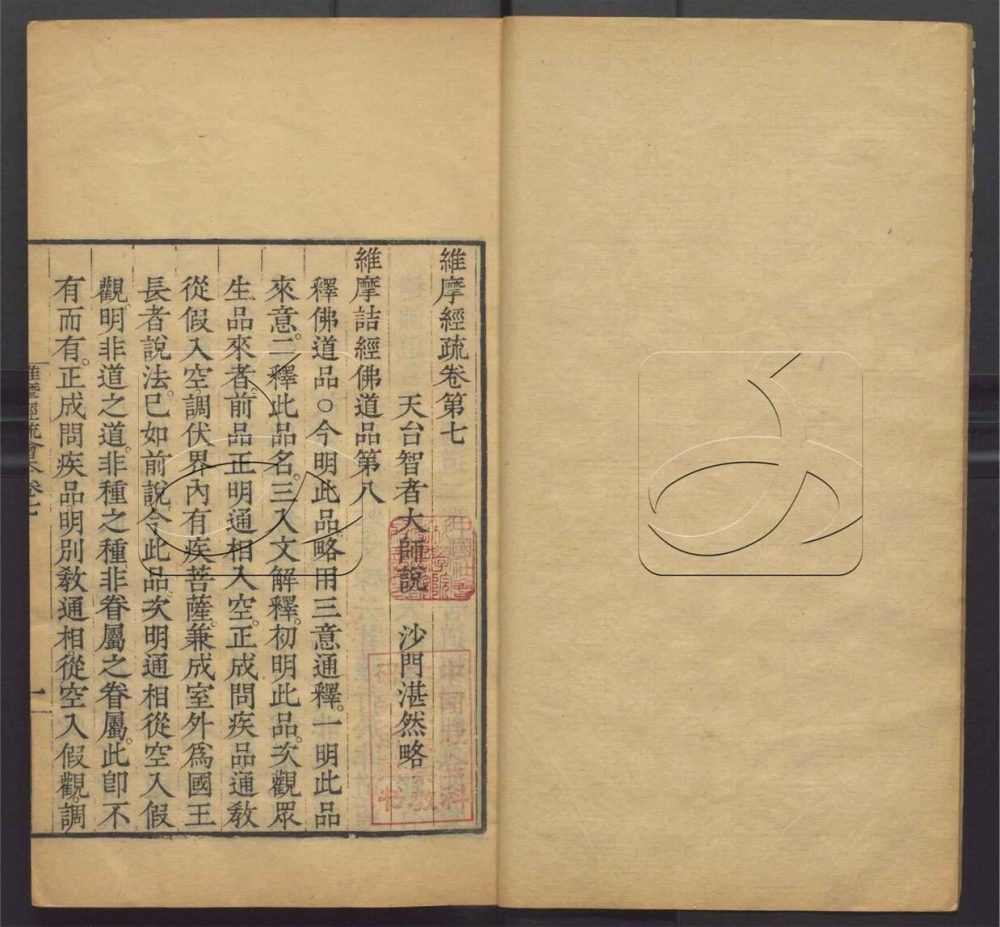 維摩經疏卷第七
天台智者大師說 沙門湛然略
維摩詰經佛道品第八
釋佛道品○今明此品略用三意通釋。一明此品
來意。二釋此品名。三入文解釋。初明此品。次觀眾
生品來者。前品正明通相入空。正成問疾品通教
從假入空調伏界內有疾菩薩。兼成室外爲國王
長者說法。已如前說。今此品次明通相從空入假
觀。明非道之道。非種之種非眷屬之眷屬。此卽不
有而有。正成問疾品明別教通相。從空入假觀。調
維摩經疏會本卷七 一